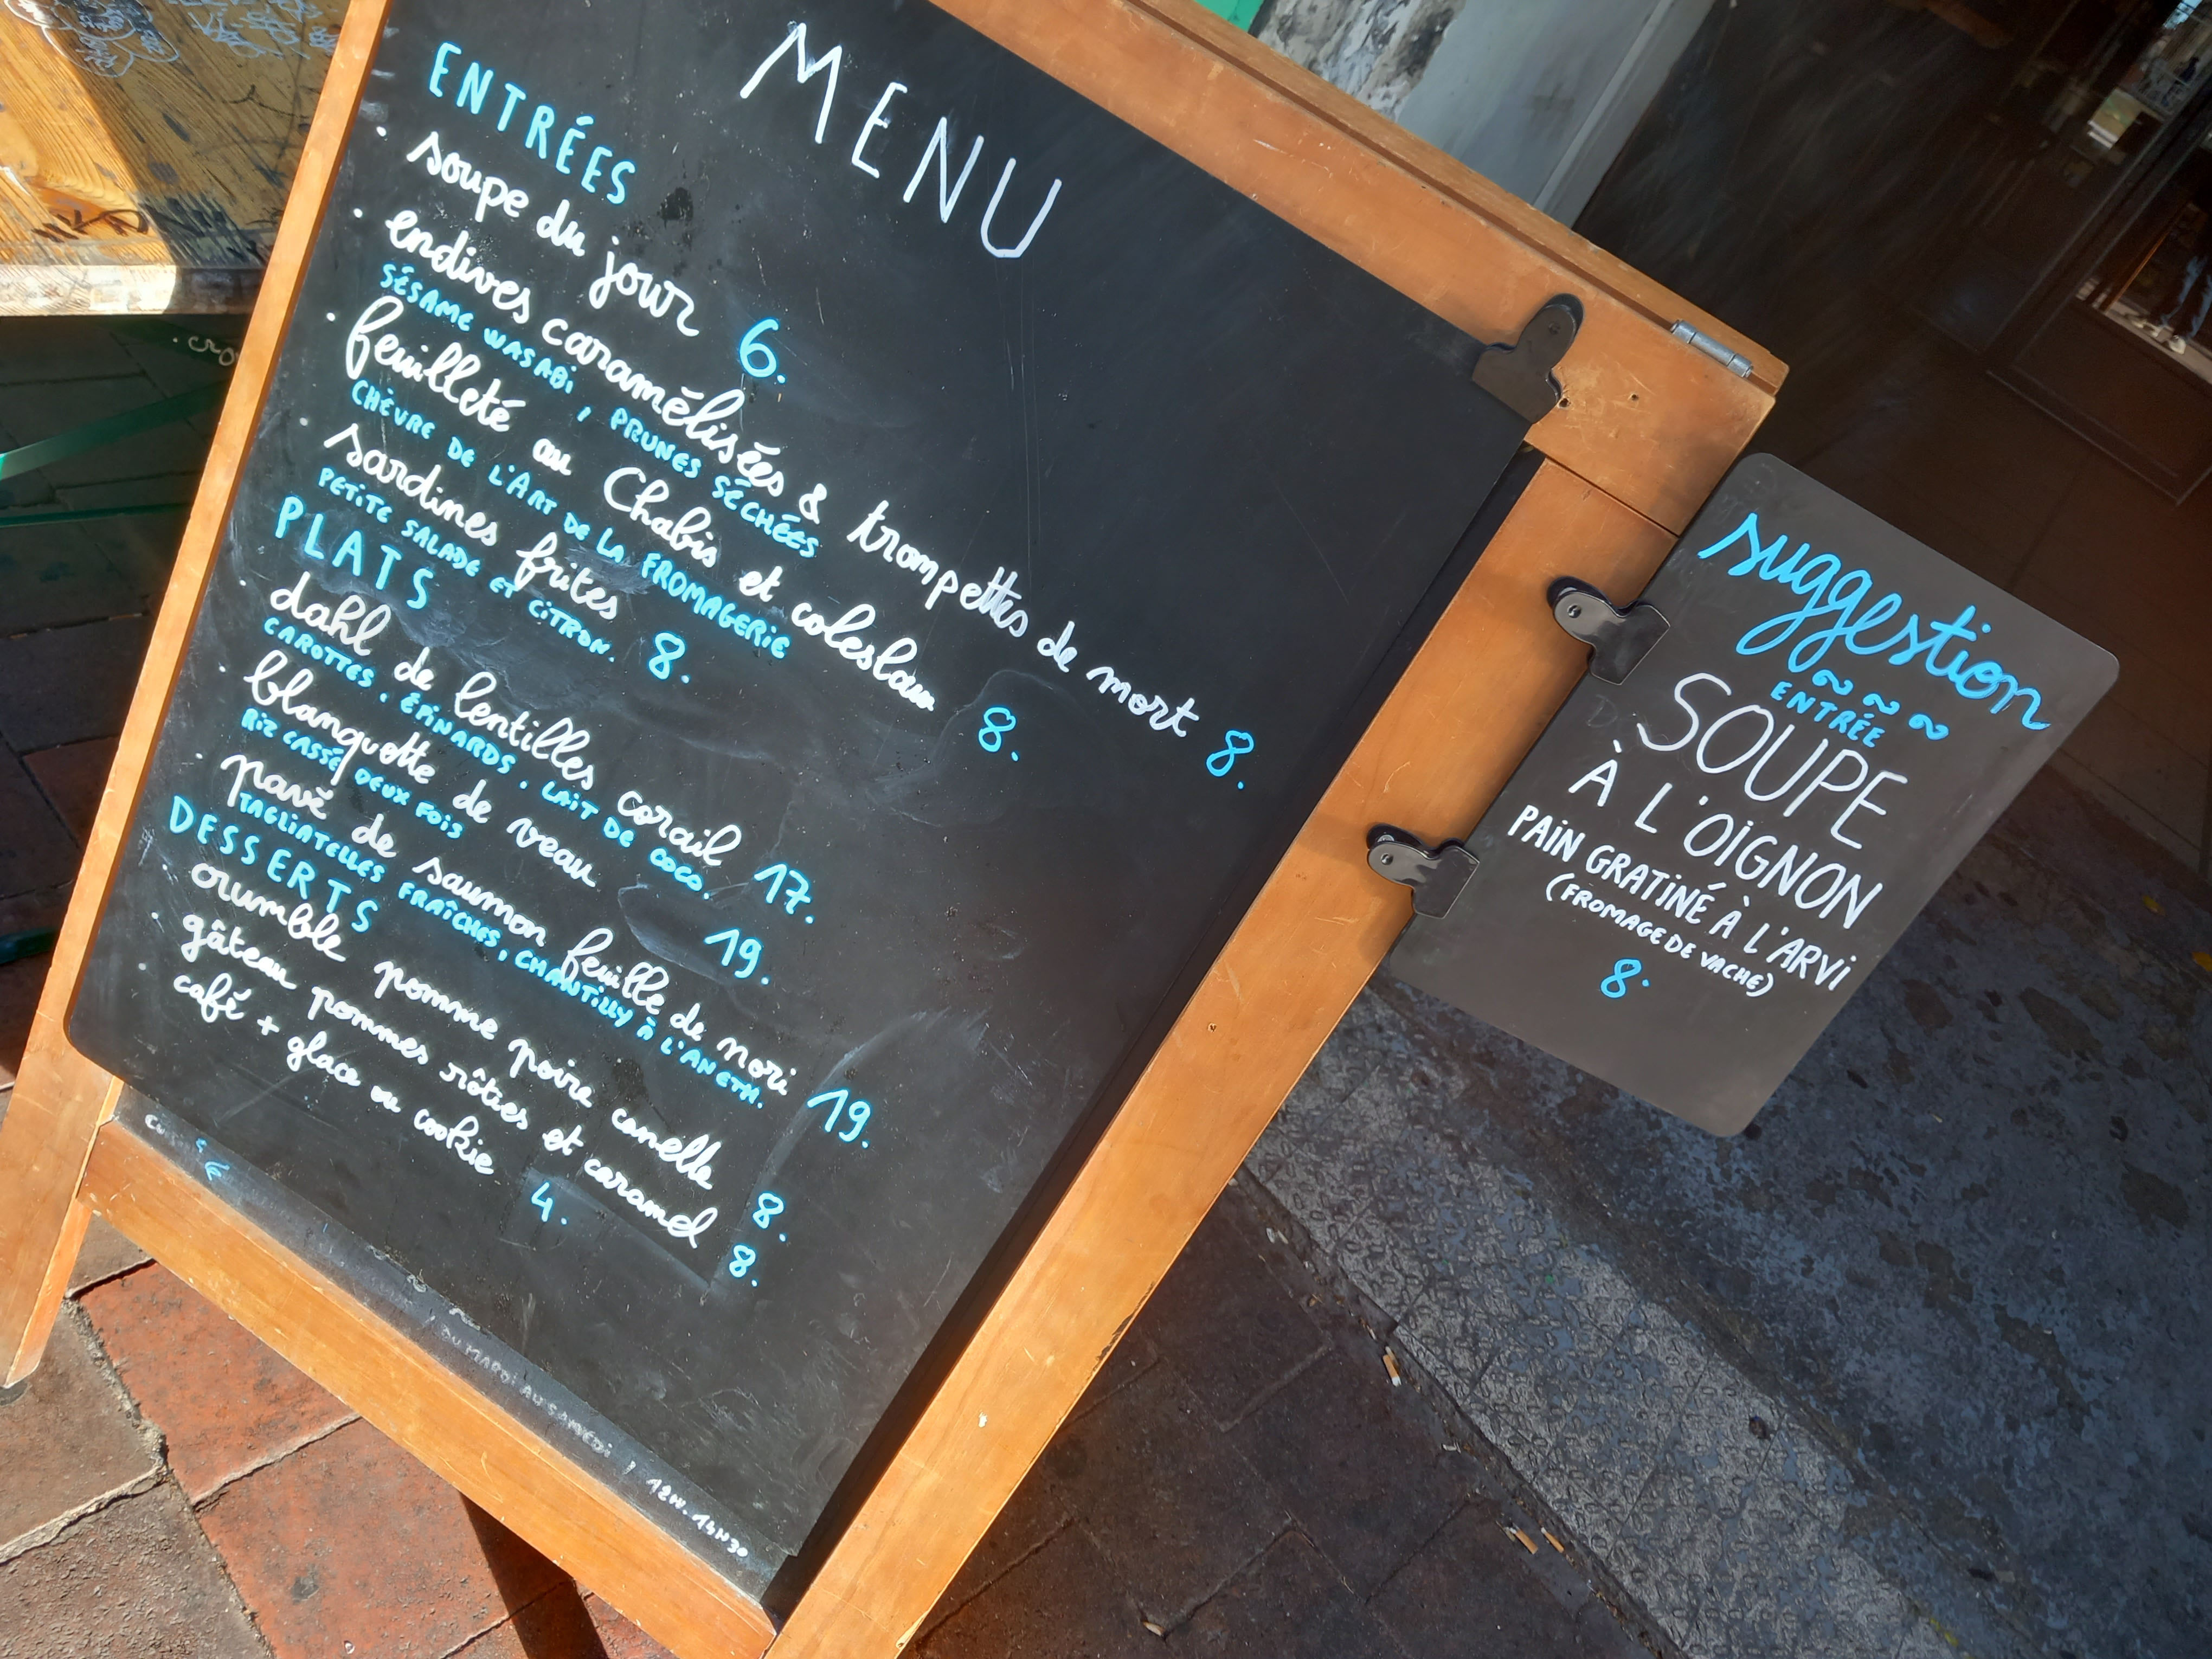 MENU
ENTRÉES
· soupe du jour 6.
· endives caramélisées & trompettes de mort 8.
SÉSAME WASABI, PRUNES SÉCHÉES
· feuilleté au Chabis et coleslaw 8.
CHÈVRE DE L'ART DE LA FROMAGERIE
· sardines frites 8.
PETITE SALADE ET CITRON.
PLATS
· dahl de lentilles corail 17.
CAROTTES. ÉPINARDS. LAIT DE COCO.
· blanquette de veau 19.
RIZ CASSÉ DEUX FOIS
· pavé de saumon feuille de nori 19.
TAGLIATELLES FRAÎCHES, CHANTILLY À L'ANETH.
DESSERTS
· crumble pomme poire canelle 8.
· gâteau pommes rôties et caramel 8.
· café + glace ou cookie 4.
DU MARDI AU SAMEDI, 12H-14H30
suggestion
~ ~ ~
ENTRÉE
SOUPE
À L'OIGNON
PAIN GRATINÉ À L'ARVI
(FROMAGE DE VACHE)
8.